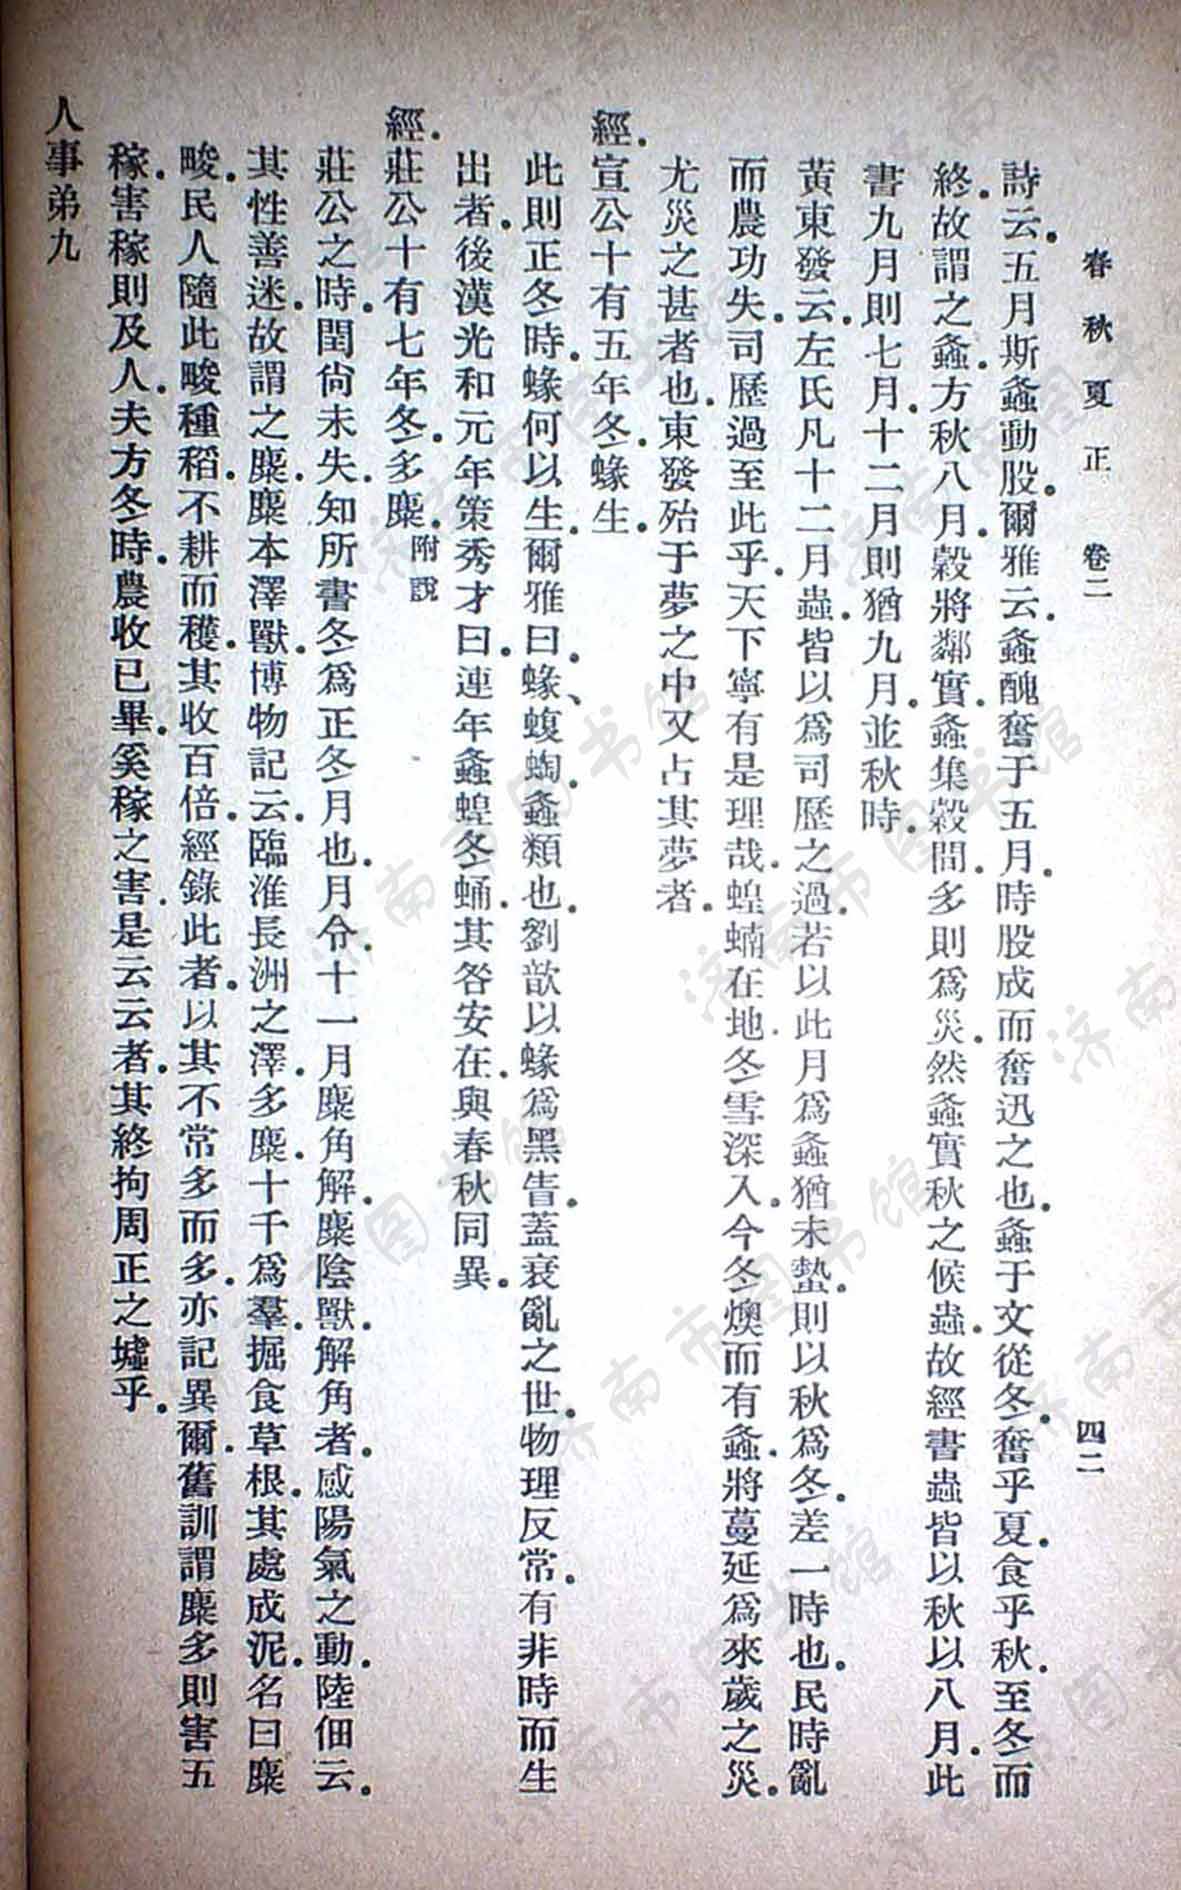 春秋夏正 卷二 四二
詩云。五月斯螽動股。爾雅云。螽醜奮于五月。時股成而奮迅之也。螽于文從冬。奮乎夏。食乎秋。至冬而
終。故謂之螽。方秋八月。穀將鄰實。螽集穀間。多則爲災。然螽實秋之候蟲。故經書蟲皆以秋以八月。此
書九月則七月。十二月則猶九月。並秋時。
黃東發云。左氏凡十二月蟲。皆以爲司歷之過。若以此月爲螽猶未蟄。則以秋爲冬。差一時也。民時亂
而農功失。司歷過至此乎。天下寧有是理哉。蝗蝻在地。冬雪深入。今冬燠而有螽。將蔓延爲來歲之災。
尤災之甚者也。東發殆于夢之中又占其夢者。
經。宣公十有五年冬。蝝生。
此則正冬時。蝝何以生。爾雅曰。蝝、蝮蜪。螽類也。劉歆以蝝爲黑眚。蓋衰亂之世。物理反常。有非時而生
出者。後漢光和元年策秀才曰。連年螽蝗冬蛹。其咎安在。與春秋同異。
經。莊公十有七年冬。多麋。附說
莊公之時。閏尙未失。知所書冬爲正冬月也。月令。十一月麋角解。麋陰獸。解角者。感陽氣之動。陸佃云。
其性善迷。故謂之麋。麋本澤獸。博物記云。臨淮長洲之澤。多麋。十千爲羣。掘食草根。其處成泥。名曰麋
畯。民人隨此畯種稻。不耕而穫。其收百倍。經錄此者。以其不常多而多。亦記異爾。舊訓謂麋多則害五
稼。害稼則及人。夫方冬時。農收已畢。奚稼之害。是云云者。其終拘周正之墟乎。
人事弟九